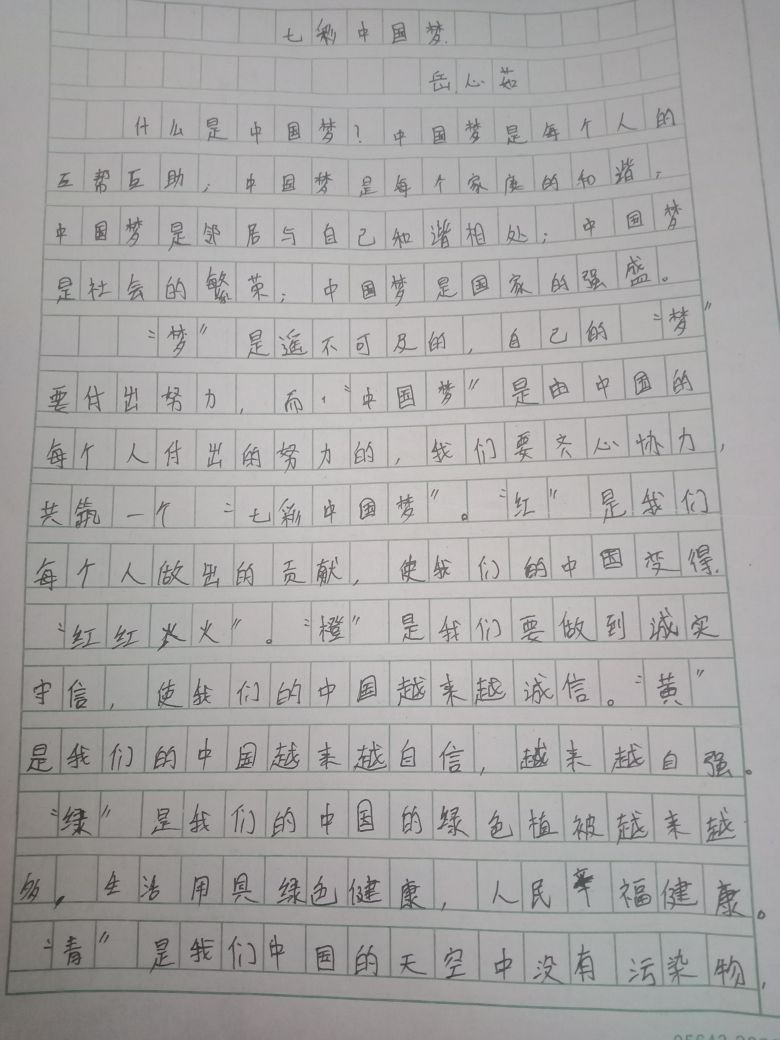 七彩中国梦
岳心茹
什么是中国梦？中国梦是每个人的
互帮互助；中国梦是每个家庭的和谐；
中国梦是邻居与自己和谐相处；中国梦
是社会的繁荣；中国梦是国家的强盛。
“梦”是遥不可及的，自己的“梦”
要付出努力，而“中国梦”是由中国的
每个人付出的努力的，我们要齐心协力，
共筑一个“七彩中国梦”。“红”是我们
每个人做出的贡献，使我们的中国变得
“红红火火”。“橙”是我们要做到诚实
守信，使我们的中国越来越诚信。“黄”
是我们的中国越来越自信，越来越自强。
“绿”是我们的中国的绿色植被越来越
多，生活用具绿色健康，人民幸福健康。
“青”是我们中国的天空中没有污染物，